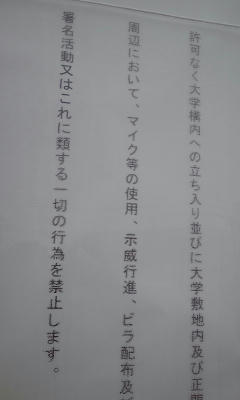 許可なく大学構内への立ち入り並びに大学敷地内及び正門
周辺において、マイク等の使用、示威行進、ビラ配布及び
署名活動又はこれに類する一切の行為を禁止します。